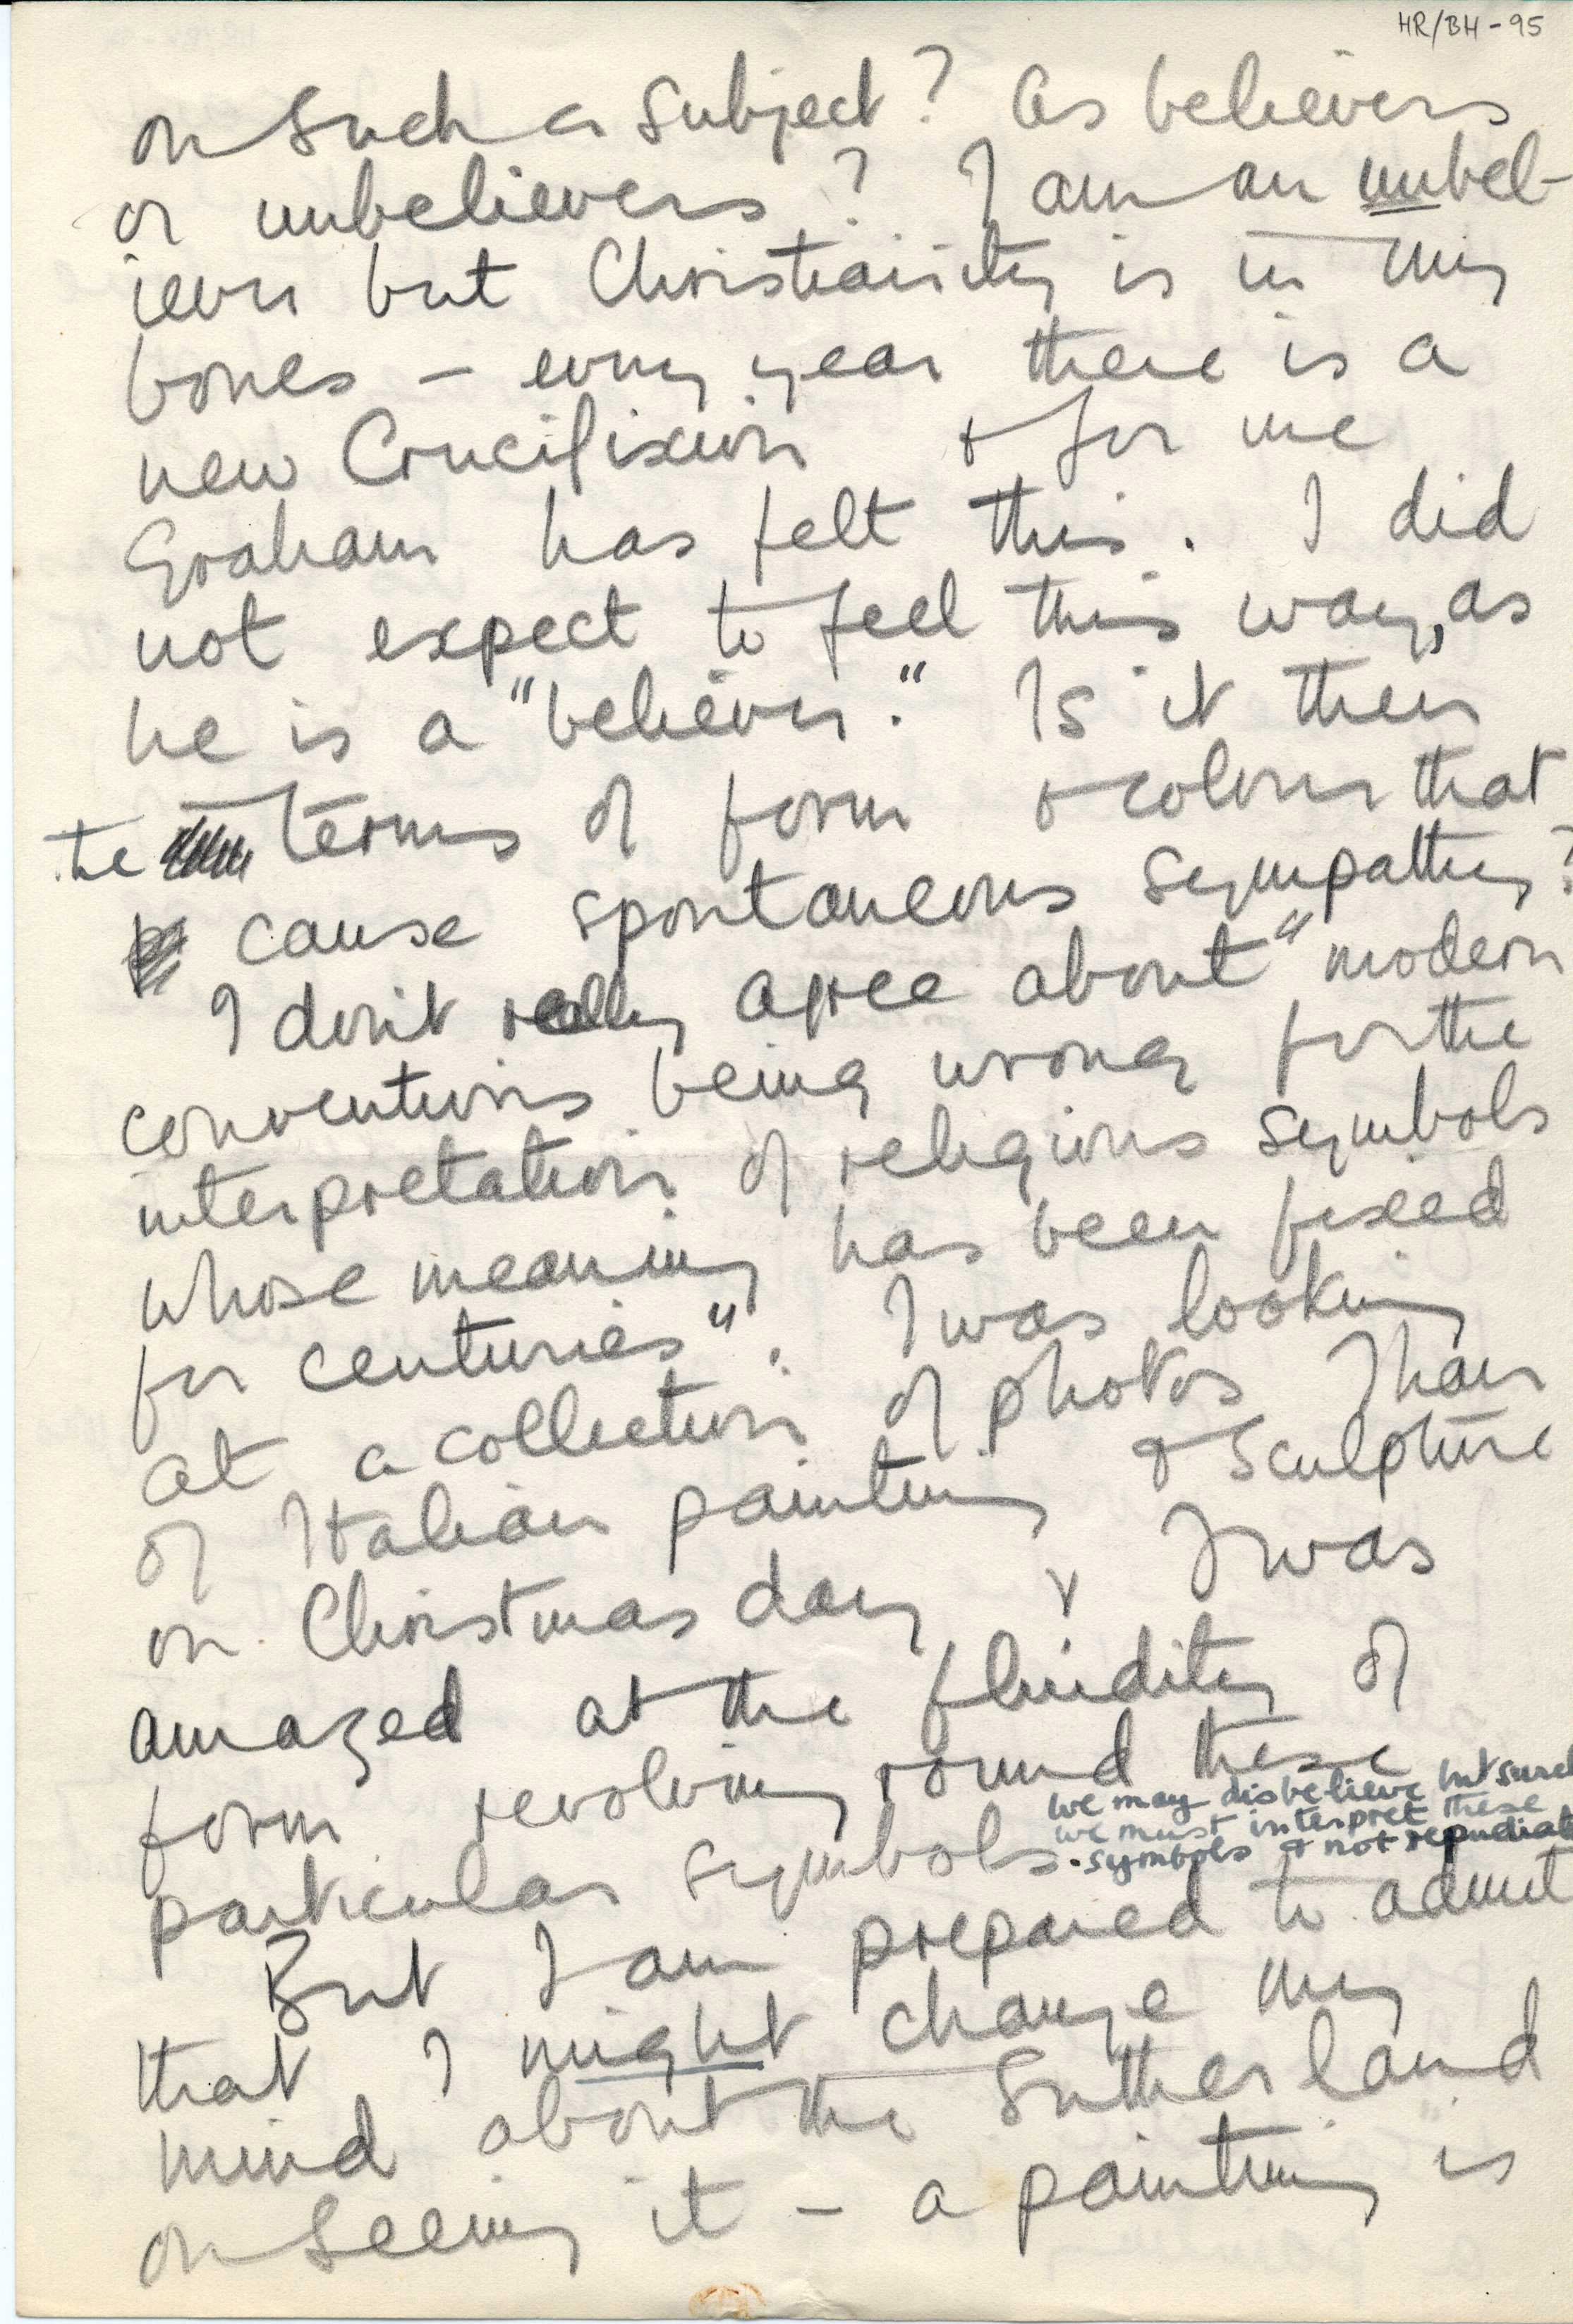 HR/BH-95
on such a subject? As believers
or unbelievers? I am an unbel-
iever but Christianity is in my
bones – every year there is a
new Crucifixion & for me
Graham has felt this. I did
not expect to feel this way, as
he is a "believer." Is it then
the terms of form & colour that
cause spontaneous sympathy?
I don't really agree about "modern
conventions being wrong for the
interpretation of religious symbols
whose meaning has been fixed
for centuries". I was looking
at a collection of photos I have
of Italian painting & sculpture
on Christmas day & I was
amazed at the fluidity of
form revolving round these
particular symbols.
we may disbelieve but surely
we must interpret these
symbols & not repudiate
But I am prepared to admit
that I might change my
mind about the Sutherland
on seeing it – a painting is